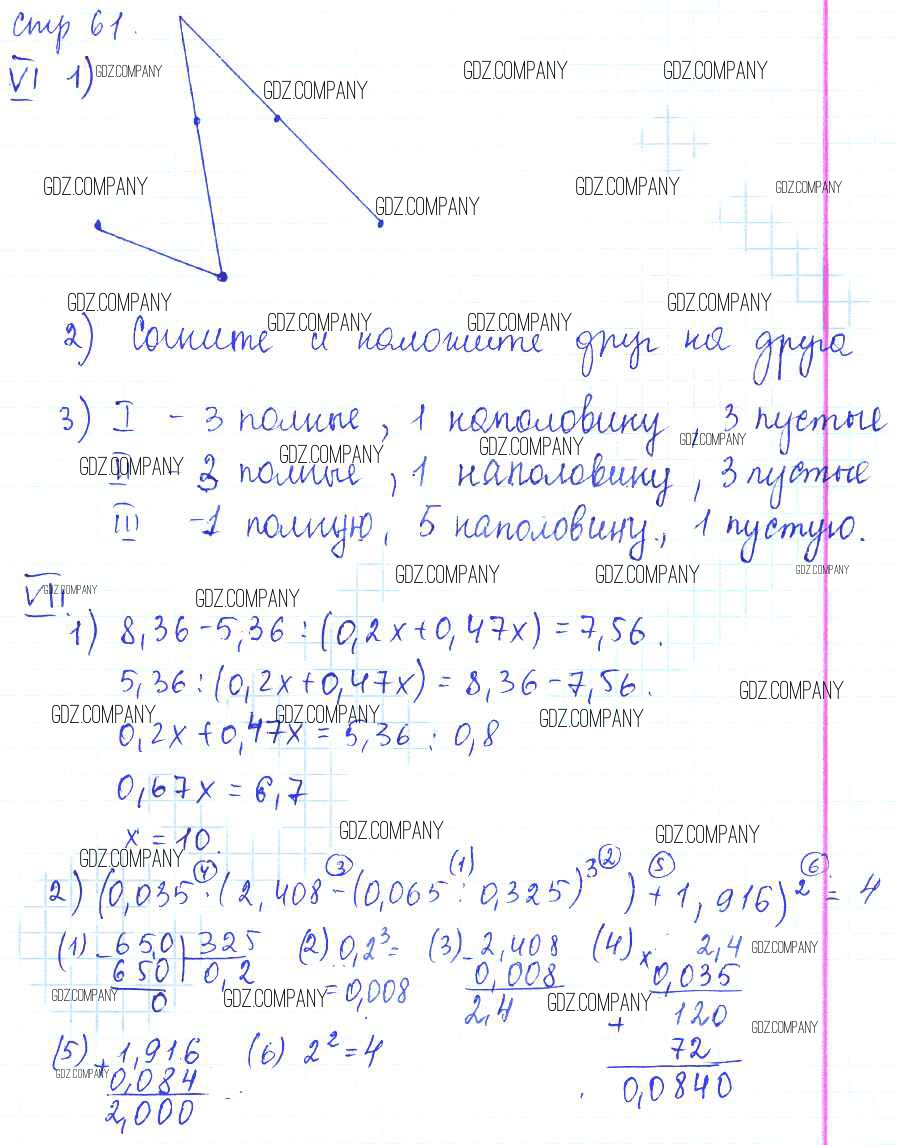 стр 61.
VI 1) GDZ.COMPANY
GDZ.COMPANY GDZ.COMPANY GDZ.COMPANY
GDZ.COMPANY GDZ.COMPANY GDZ.COMPANY GDZ.COMPANY
GDZ.COMPANY GDZ.COMPANY GDZ.COMPANY GDZ.COMPANY
2) Сомните и наложите друг на друга
3) I - 3 полные, 1 наполовину, 3 пустые
GDZ.COMPANY GDZ.COMPANY GDZ.COMPANY GDZ.COMPANY
II - 3 полные, 1 наполовину, 3 пустые
III -1 полную, 5 наполовину, 1 пустую.
GDZ.COMPANY GDZ.COMPANY GDZ.COMPANY GDZ.COMPANY GDZ.COMPANY
VII.
1) 8,36-5,36:(0,2x+0,47x)=7,56.
5,36:(0,2x+0,47x)=8,36-7,56.
GDZ.COMPANY GDZ.COMPANY GDZ.COMPANY GDZ.COMPANY
0,2x+0,47x=5,36:0,8
0,67x=6,7
x=10.
GDZ.COMPANY GDZ.COMPANY GDZ.COMPANY
(4) (3) (1) (2) (5) (6)
2) (0,035·(2,408-(0,065:0,325)³)+1,916)²=4
(1) -65,0 325 (2) 0,2³= (3) -2,408 (4) × 2,4 GDZ.COMPANY
650 0,2 =0,008 0,008 0,035
0 2,4 120
GDZ.COMPANY GDZ.COMPANY GDZ.COMPANY GDZ.COMPANY
+ 72
(5) +1,916 (6) 2²=4 0,0840
0,084 GDZ.COMPANY
2,000